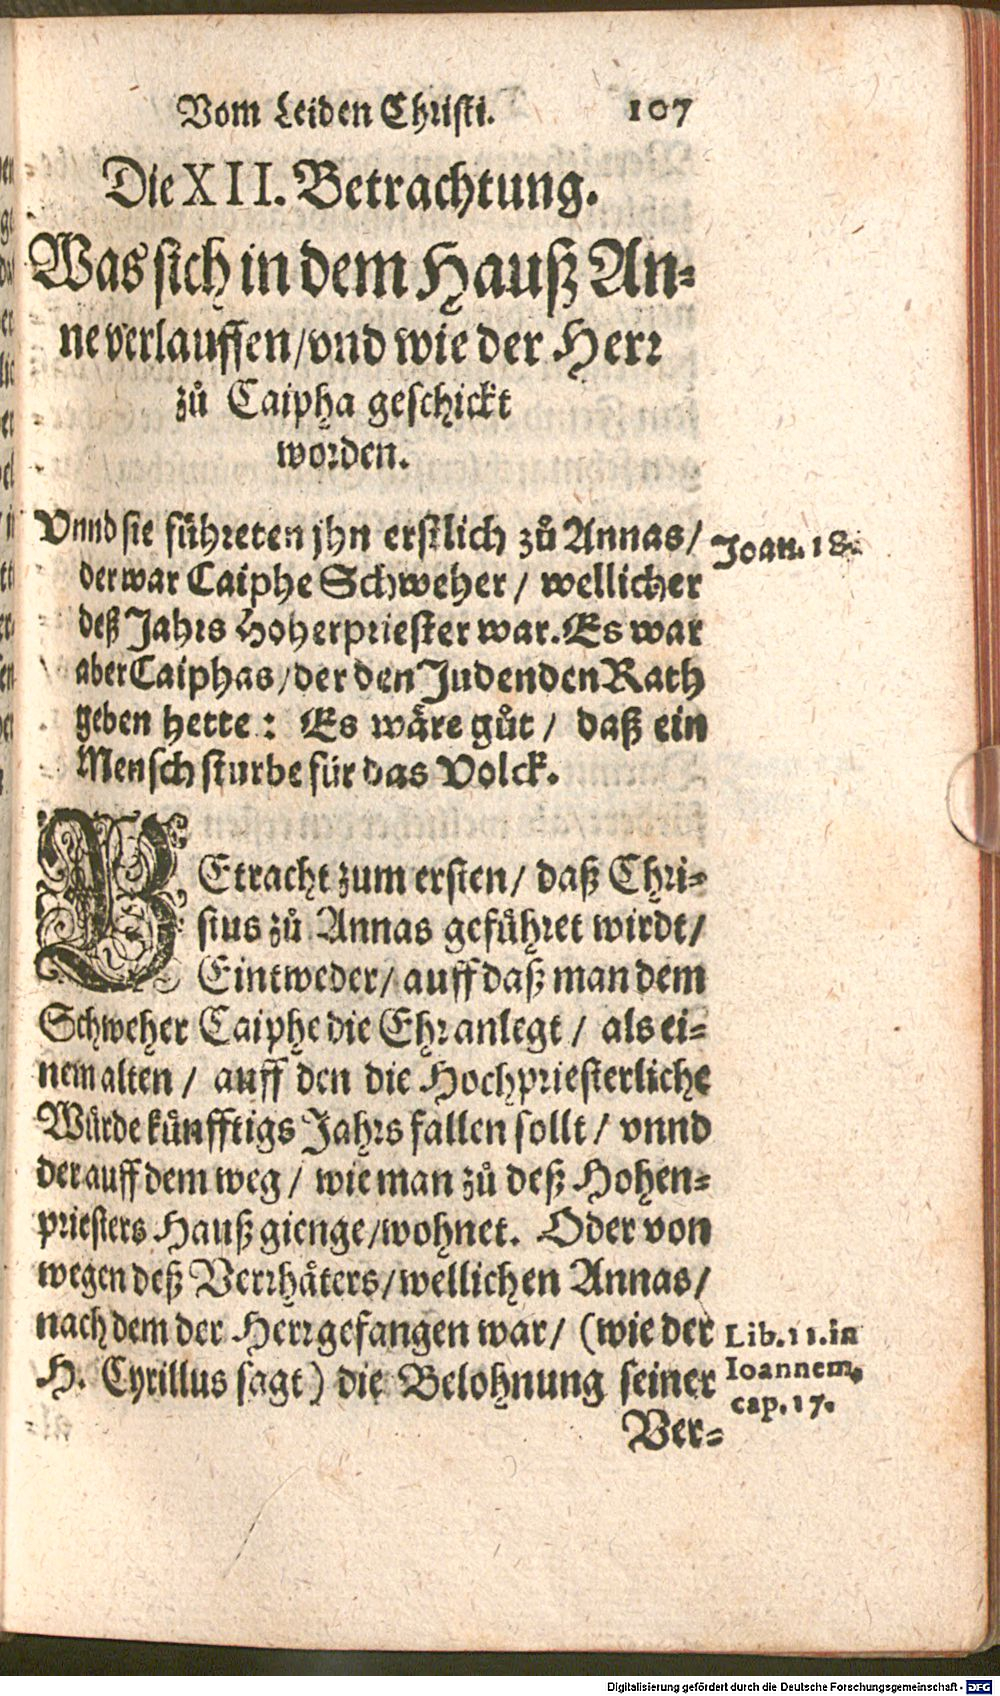 Vom Leiden Christi. 107
Die XII. Betrachtung.
Was sich in dem Hauß An-
ne verlauffen/vnd wie der Herr
zů Caipha geschickt
worden.
Vnnd sie führeten jhn erstlich zů Annas/
der war Caiphe Schweher / wellicher
deß Jahrs Hoherpriester war. Es war
aber Caiphas/der den Juden den Rath
geben hette: Es wäre gůt / daß ein
Mensch sturbe für das Volck.
Joan. 18.
BEtracht zum ersten/ daß Chri-
stus zů Annas geführet wirdt/
Eintweder/ auff daß man dem
Schweher Caiphe die Ehr anlegt / als ei-
nem alten / auff den die Hochpriesterliche
Würde künfftigs Jahrs fallen sollt / vnnd
der auff dem weg / wie man zů deß Hohen-
priesters Hauß gienge/wohnet. Oder von
wegen deß Verrhäters/wellichen Annas/
nach dem der Herr gefangen war/ (wie der
H. Cyrillus sagt) die Belohnung seiner
Lib. 11. in
Ioannem.
cap. 17.
Ver-
Digitalisierung gefördert durch die Deutsche Forschungsgemeinschaft - DFG